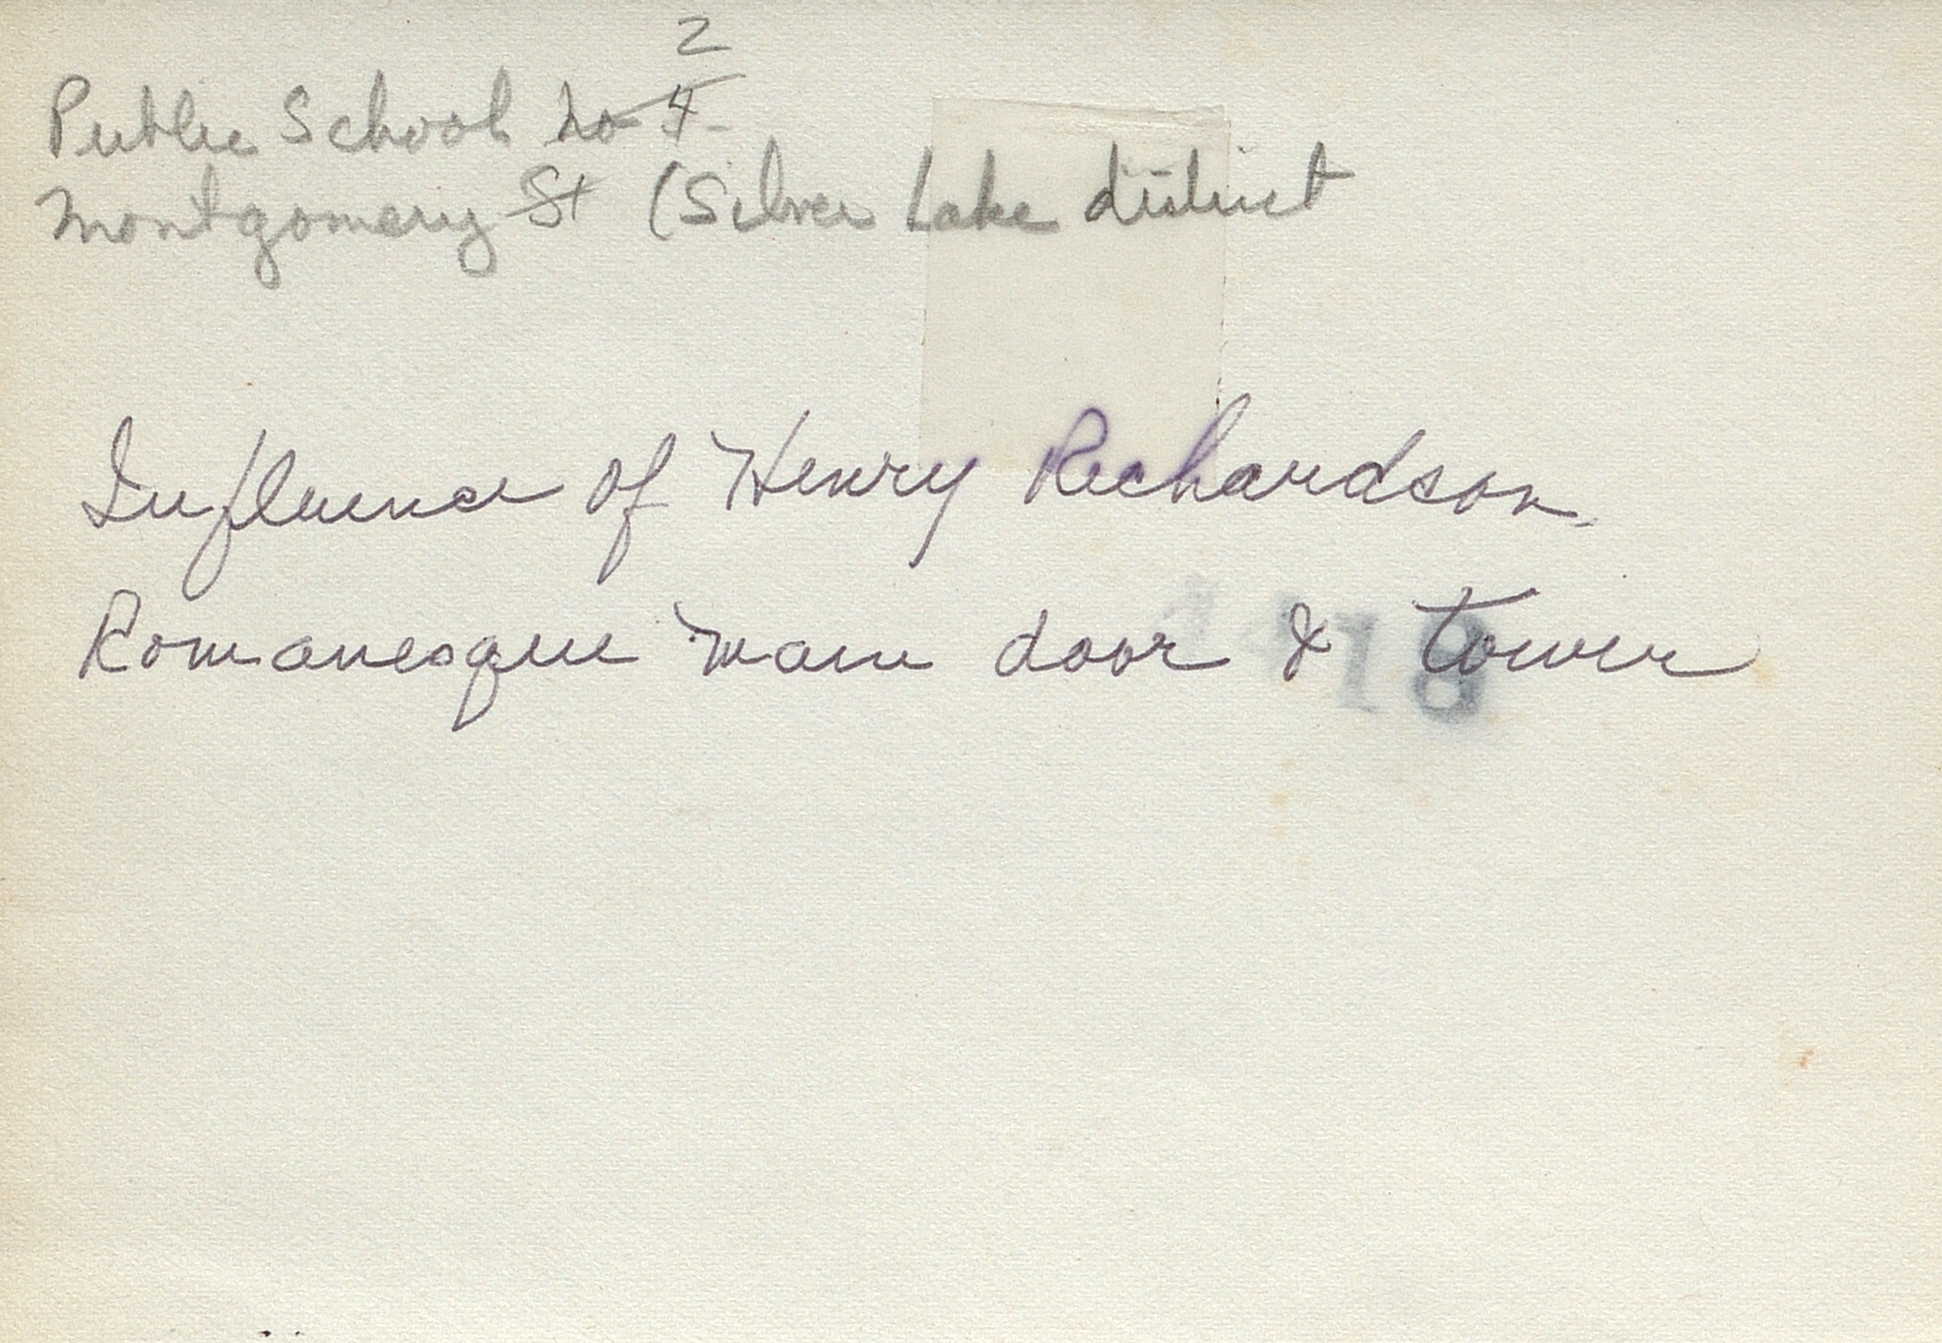 2
Public School No 4
Montgomery St (Silver Lake district
Influence of Henry Richardson.
Romanesque main door & tower